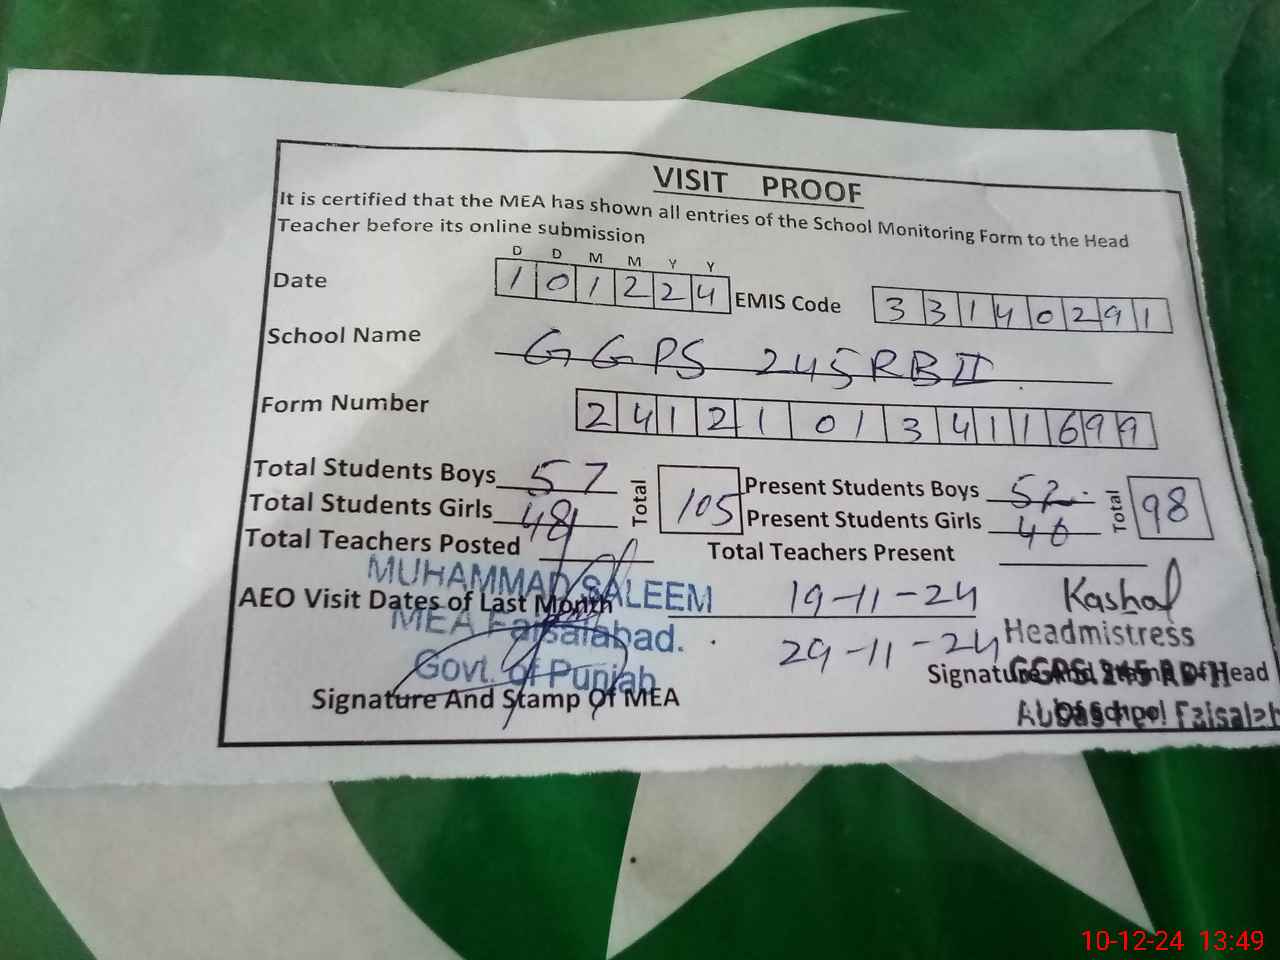 VISIT PROOF
It is certified that the MEA has shown all entries of the School Monitoring Form to the Head
Teacher before its online submission
D D M M Y Y
Date 1 0 1 2 2 4 EMIS Code 3 3 1 4 0 2 9 1
School Name GGPS 245RB II
Form Number 2 4 1 2 1 0 1 3 4 1 1 6 9 9
Total Students Boys 57 Total 105 Present Students Boys 52 Total 98
Total Students Girls 48 Present Students Girls 46
Total Teachers Posted Total Teachers Present
MUHAMMAD SALEEM
AEO Visit Dates of Last Month 19-11-24 Kashaf
MEA Faisalabad. 29-11-24 Headmistress
Govt. of Punjab
Signature And Stamp Of MEA Signature And Stamp Of Head
Of School Faisalab
10-12-24 13:49